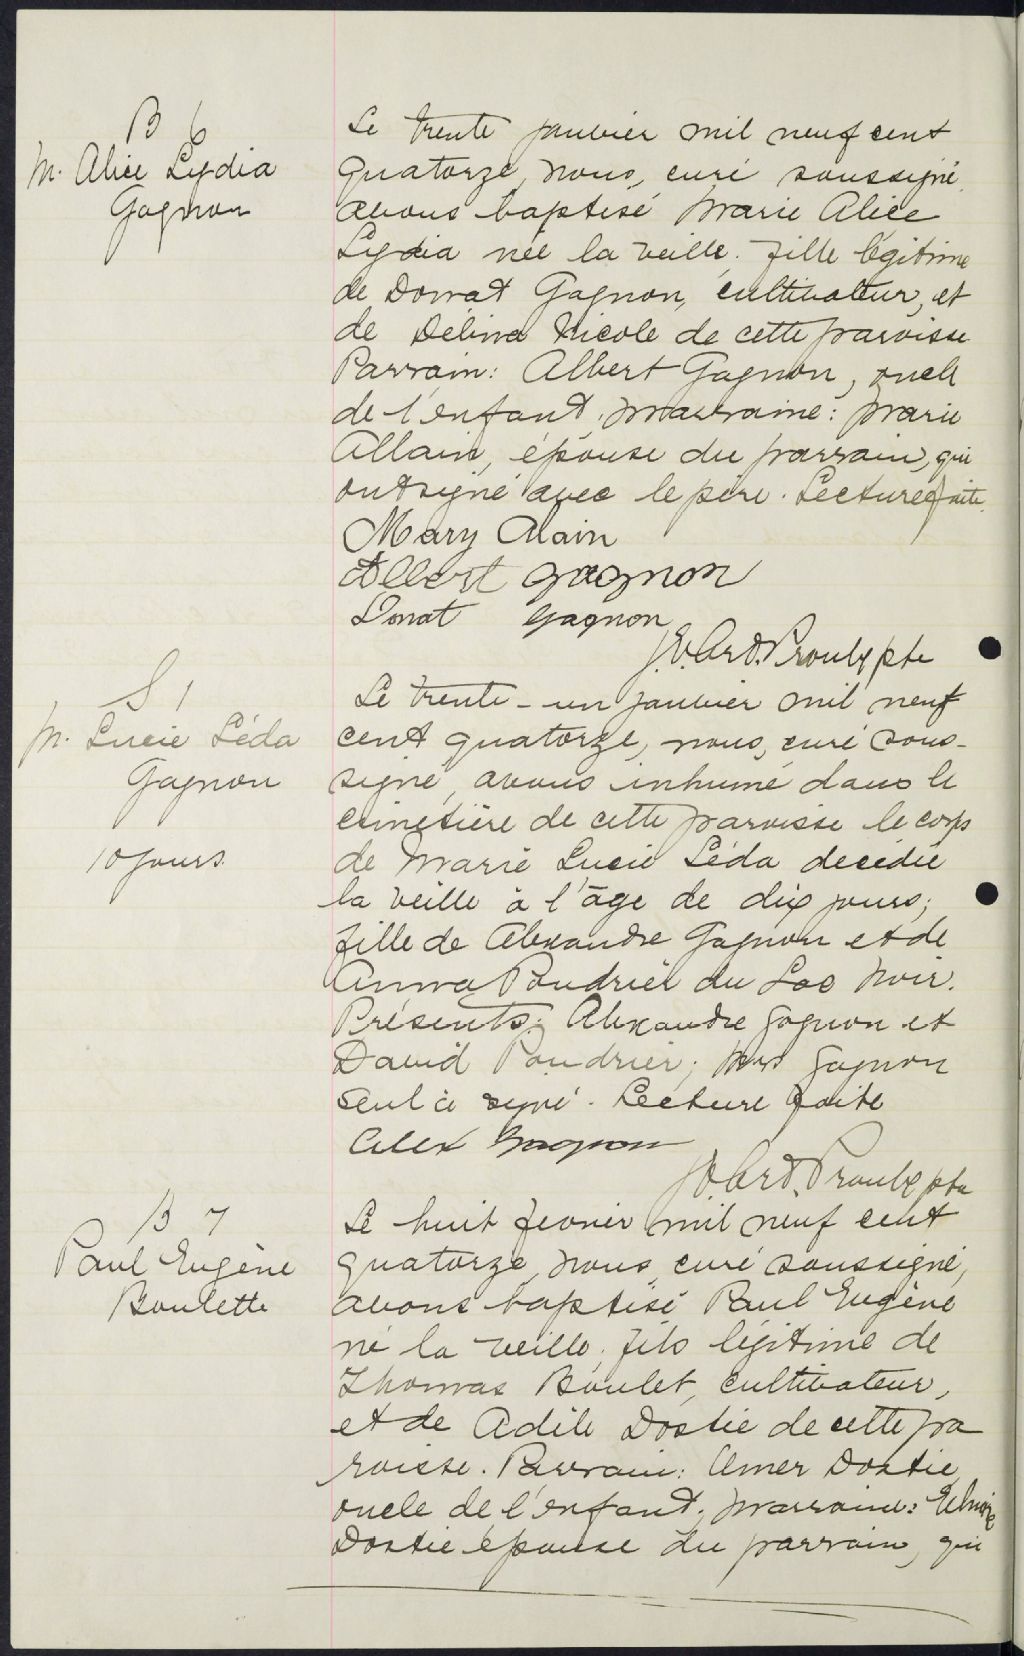 B 6
M. Alice Lydia
Gagnon
Le trente janvier mil neuf cent
quatorze, nous, curé soussigné
avons baptisé Marie Alice
Lydia née la veille, fille légitime
de Donat Gagnon, cultivateur, et
de Délina Nicole de cette paroisse
Parrain: Albert Gagnon, oncle
de l'enfant, marraine: Marie
Allain, épouse du parrain, qui
ont signé avec le père. Lecture faite.
Mary Alain
Albert Gagnon
Donat Gagnon
Proulx ptre
S 1
M. Lucie Léda
Gagnon
10 jours
Le trente-un janvier mil neuf
cent quatorze, nous, curé sous-
signé, avons inhumé dans le
cimetière de cette paroisse le corps
de Marie Lucie Léda décédée
la veille à l'âge de dix jours;
fille de Alexandre Gagnon et de
Anna Poudrier du Lac Noir.
Présents: Alexandre Gagnon et
David Poudrier; Gagnon
seul a signé. Lecture faite
Alex Gagnon
Proulx ptre
B 7
Paul Eugène
Boulette
Le huit fevrier mil neuf cent
quatorze, nous, curé soussigné,
avons baptisé Paul Eugène
né la veille, fils légitime de
Thomas Boulet, cultivateur,
et de Adèle Dostie de cette pa
roisse. Parrain: Omer Dostie,
oncle de l'enfant, marraine:
Dostie épouse du parrain, qui